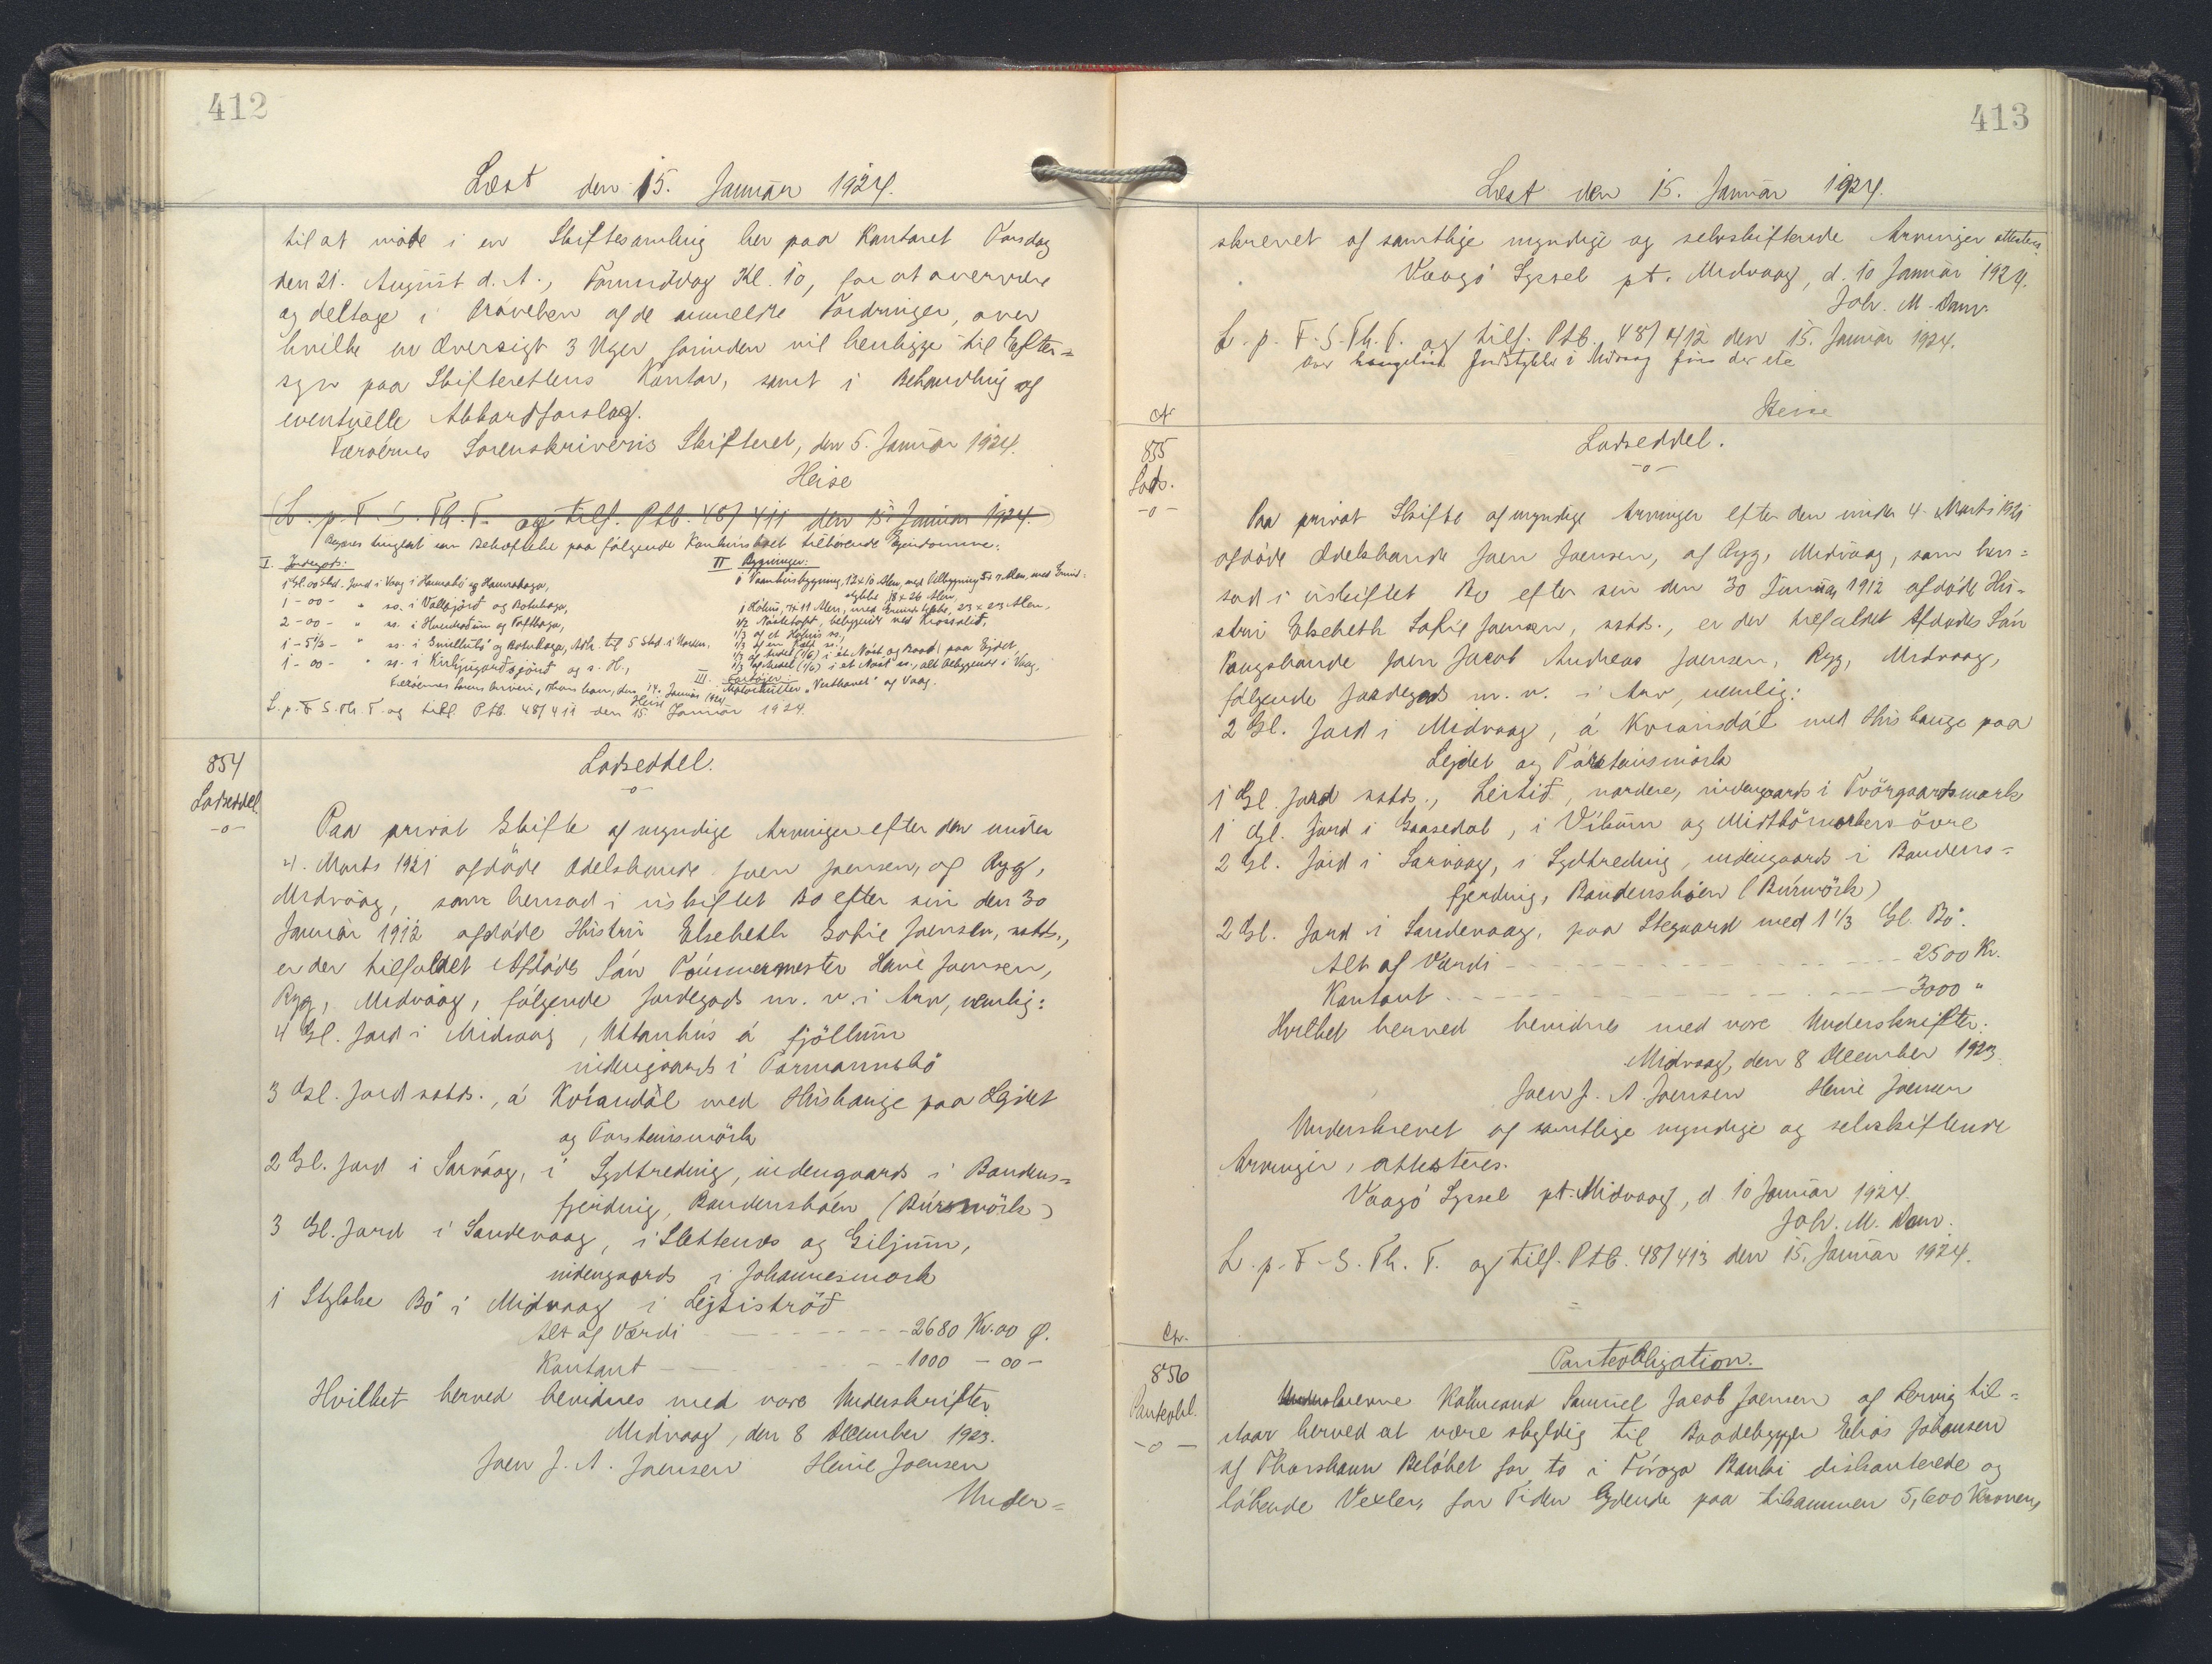 412
Læst den 15. Januar 1924.
til at møde i en Skiftesamling her paa Kontoret Torsdag
den 21. August d. A., Formiddag Kl. 10, for at overvære
og deltage i Prøvelsen af de anmeldte Fordringer, over
hvilke en Oversigt 3 Uger forinden vil henligge til Efter=
syn paa Skifterettens Kontor, samt i Behandling af
eventuelle Akkordforslag.
Færøernes Sorenskriveris Skifteret, den 5. Januar 1924.
Heise
(L. p. F. S. Th. T. og tilf. Ptb. 48/411 den 15. Januar 1924.)
Begæres tinglæst som Behæftelse paa følgende Konkursboet tilhørende Ejendomme:
I. Jordegods:
1 Gl. 00 Skd. Jord i Vaag i Hamrabø og Hamrahaga,
1 - 00 - " ss. i Vallajørd og Botnhaga,
2 - 00 - " ss. i og Tofthaga,
1 - 5⅓ - " ss. i og Botnhaga, 5 Skd. i
1 - 00 - " ss. i Kirkjugarðsjørð og s. H.,
II Bygninger:
1 Vaanhusbygning, 12 x 10 Alen, med Tilbygning 5 x 7 Alen, med Grund=
stykke 18 x 26 Alen,
1 Hølus, 7 x 11 Alen, med Grundstykke, 23 x 23 Alen,
1/2 Nøstetoft, beliggende ved Krossalið,
1/3 af et Hølus ss.,
1/3 af en ss.,
1/3 af Andel (1/6) i et Nøst og Baad paa Ejdet,
1/3 af Andel (1/6) i et Nøst ss., alt beliggende i Vaag,
III. Fartøjer:
Motorkutter „Vesthavet" af Vaag.
Færøernes Sorenskriveri, Thorshavn, den 14. Januar 1924
Heise
L. p. F. S. Th. T. og tilf. Ptb. 48/411 den 15 Januar 1924.
854
Lodseddel
-o-
Lodseddel.
-o-
Paa privat Skifte af myndige Arvinger efter den under
4. Marts 1921 afdøde Odelsbonde Joen Joensen, af Ryg,
Midvaag, som hensad i uskiftet Bo efter sin den 30
Januar 1912 afdøde Hustru Elsebeth Sofie Joensen, sstds.,
er der tilfaldet Afdødes Søn Tømmermester Heine Joensen,
Ryg, Midvaag, følgende Jordegods m. v. i Arv, nemlig:
4 Gl. Jord i Midvaag, Uttanhus á fjøllum
indengaards i Tormannsbø
3 Gl. Jord sstds., á Kvíandál med Hushauge paa Lejdet
og Torsteinsmørk
2 Gl. Jord i Sørvaag, i Sydtreding, indengaards i Bondens=
fjerding, Bondenshøen (Búrmørk)
3 Gl. Jord i Sandevaag, i Slettenes og Giljum,
indengaards i Johannesmork
1 Stykke Bø i Midvaag i Lejtistrøð
Alt af Værdi - - - - - - - - 2680 Kr. 00 Ø.
Kontant - - - - - - 1000 - 00 -
Hvilket herved bevidnes med vore Underskrifter
Midvaag, den 8 December 1923.
Joen J. A. Joensen Heine Joensen
Under=
413
Læst den 15. Januar 1924.
skrevet af samtlige myndige og selvskiftende Arvinger attesteres
Vaagø Syssel pt. Midvaag, d. 10 Januar 1924.
Joh. M. Dam.
L. p. F. S. Th. T. og tilf. Ptb. 48/412 den 15. Januar 1924.
Heise
855
Lods.
-o-
Lodseddel.
-o-
Paa privat Skifte af myndige Arvinger efter den under 4. Marts 1921
afdøde Odelsbonde Joen Joensen, af Ryg, Midvaag, som hen=
sad i uskiftet Bo efter sin den 30 Januar 1912 afdøde Hu=
stru Elsebeth Sofie Joensen, sstds., er der tilfaldet Afdødes Søn
Kongsbonde Joen Jacob Andreas Joensen, Ryg, Midvaag,
følgende Jordegods m. v. i Arv, nemlig:
2 Gl. Jord i Midvaag, á Kvíandál med Hushauge paa
Lejdet og Tórsteinsmørk
1 Gl. Jord sstds., Leitið, nordere, indengaards i Tvørgaardsmork
1 Gl. Jord i Gaasedal, i Víkum og øvre
2 Gl. Jord i Sørvaag, i Sydtreding, indengaards i Bondens=
fjerding, Bondenshøen (Búrmørk)
2 Gl. Jord i Sandevaag, paa Stegaard med 1 1/3 Gl. Bø.
Alt af Værdi - - - - - - - - 2500 Kr.
Kontant - - - - - - - - 3000 "
Hvilket herved bevidnes med vore Underskrifter:
Midvaag, den 8 December 1923.
Joen J. A. Joensen Heine Joensen
Underskrevet af samtlige myndige og selvskiftende
Arvinger, attesteres.
Vaagø Syssel pt. Midvaag, d. 10 Januar 1924.
Joh. M. Dam.
L. p. F. S. Th. T. og tilf. Ptb. 48/413 den 15. Januar 1924.
856
Panteobl.
-o-
Panteobligation.
Købmand Samuel Jacob Joensen af Lervig til=
staar herved at være skyldig til Baadebygger Elias Johansen
af Thorshavn Beløbet for to i Føroya Banki diskonterede og
løbende Vexler, for Tiden lydende paa tilsammen 5,600 Kroner,